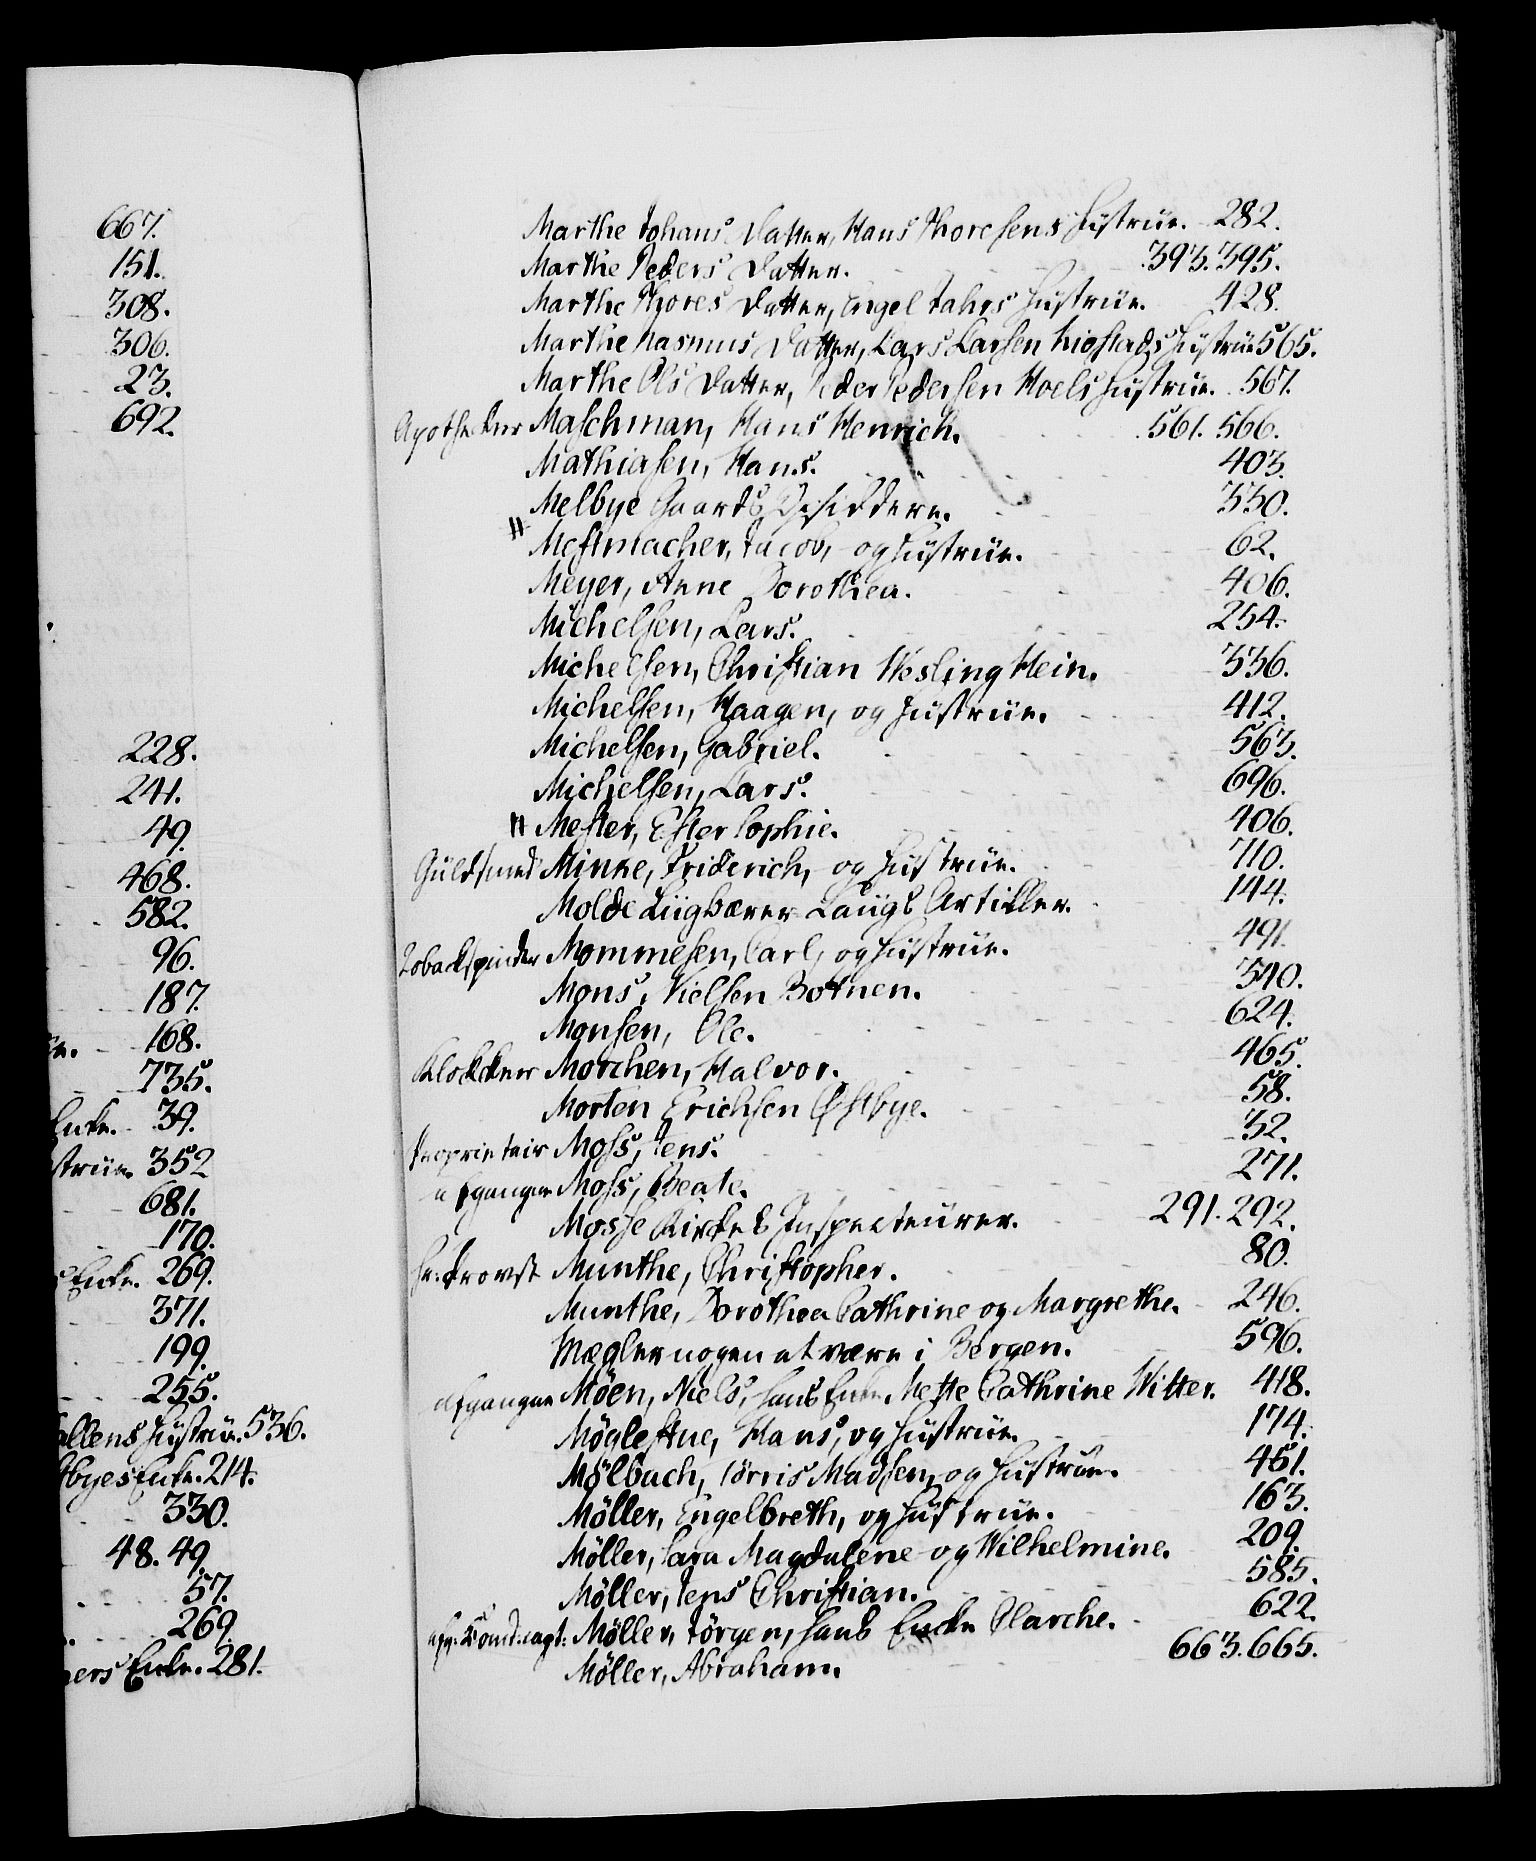 667.
151.
308.
306.
23.
692.
228.
241.
49.
468.
582.
96.
187.
168.
735.
Encke. 39.
strüe. 352
681.
170.
s Encke. 269.
371.
199.
255.
allens Hüstrüe. 536.
byes Encke. 214.
330.
48. 49.
57.
269
ers Encke. 281.
Marthe Johans Datter, Hans Thoresens Hüstrüe. 282.
Marthe Peders Datter. 393. 395.
Marthe Thores Datter, Engel Jahrs Hüstrüe. 428.
Marthe Rasmus Datter, Lars Larsen Hüstrüe 565.
Marthe Ols Datter, Peder Pedersen Hoels Hüstrüe. 567.
Apothecker Maschman, Hans Henrich. 561. 566.
Mathiasen, Hans. 403.
Melbye Gaards Besiddere. 330.
Mestmacher, Jacob, og Hüstrüe. 62.
Meyer, Anne Dorothea. 406.
Michelsen, Lars. 254.
Michelsen, Christian Wesling Hein. 336.
Michelsen, Haagen, og Hüstrüe. 412.
Michelsen, Gabriel. 563.
Michelsen, Lars. 696.
Mester, Ester Sophie. 406.
Güldsmed Minke, Friderich, og Hüstrüe. 710.
Molde Liigbærer Laügs Artikler. 144.
Tobackspinder Mommesen, Carl, og Hüstrüe. 491.
Mons, Nielsen Botnen. 340.
Monsen, Ole. 624.
Klokker Morchen, Halvor. 465.
Morten Erichsen Østbye. 58.
Proprietair Moss, Jens. 32.
afgangne Moss, Beate. 271.
Mosse Kirkes Inspecteurer. 291. 292.
Hr: Provst Munthe, Christopher. 80.
Munthe, Dorothea Cathrine og Margrethe. 246.
Mægler nogen at være i Bergen. 596.
afgangne Möen, Niels, hans Encke Mette Cathrine Witter. 418.
Möglestue, Hans, og Hüstrüe. 174.
Mölbach, Jörris Madsen, og Hüstrüe. 451.
Möller, Engelbreth, og Hüstrüe. 163.
Möller, Sara Magdalene og Wilhelmine. 209.
Möller, Jens Christian. 585.
Möller, Jörgen, hans Encke Clarche. 622.
Möller, Abraham. 663. 665.